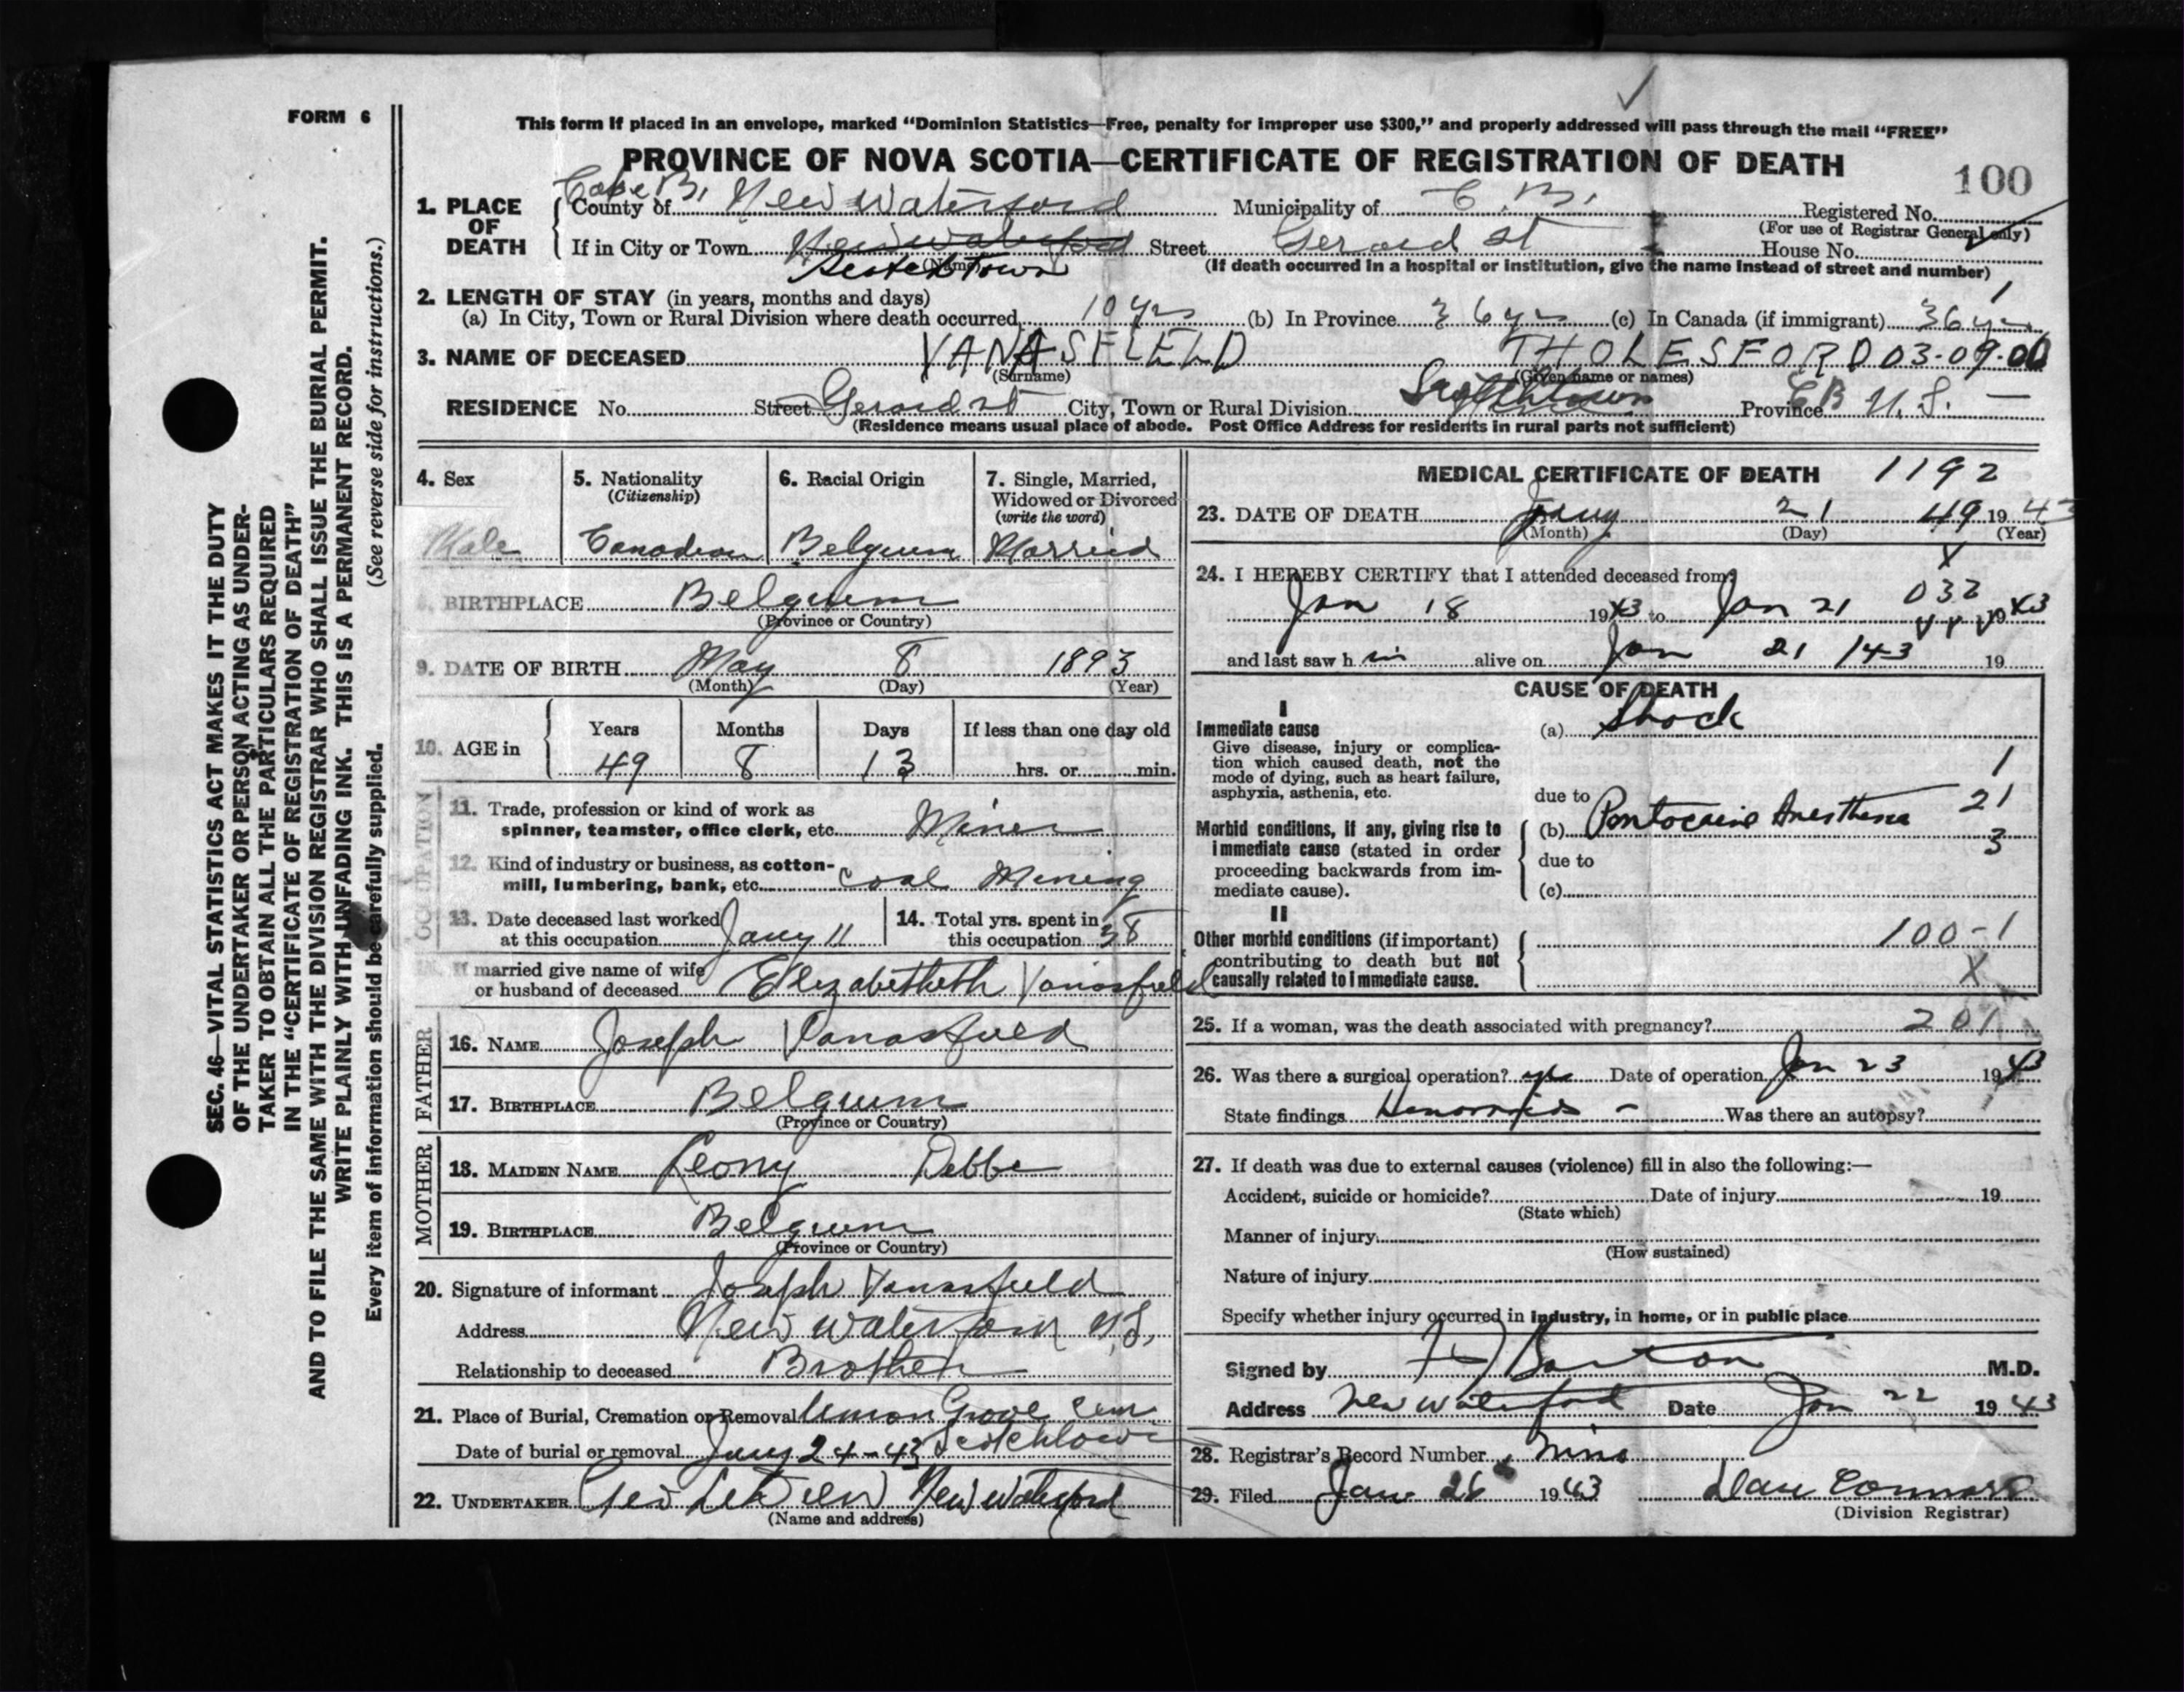 FORM 6
This form if placed in an envelope, marked “Dominion Statistics—Free, penalty for improper use $300,” and properly addressed will pass through the mail “FREE”
PROVINCE OF NOVA SCOTIA—CERTIFICATE OF REGISTRATION OF DEATH
100
1. PLACE OF DEATH
Cape B. County of New Waterford Municipality of C. B. Registered No.
(For use of Registrar General only)
If in City or Town New Waterford Street Gerard St House No.
Scotchtown (Name) (If death occurred in a hospital or institution, give the name instead of street and number)
2. LENGTH OF STAY (in years, months and days) 1
(a) In City, Town or Rural Division where death occurred 10 yrs (b) In Province 36 yrs (c) In Canada (if immigrant) 36 yrs
3. NAME OF DECEASED VANASFIELD THOLESFORD 03-09-00
(Surname) (Given name or names)
RESIDENCE No. Street Gerard st City, Town or Rural Division Scotchtown Province CB N.S. —
(Residence means usual place of abode. Post Office Address for residents in rural parts not sufficient)
SEC. 46—VITAL STATISTICS ACT MAKES IT THE DUTY
OF THE UNDERTAKER OR PERSON ACTING AS UNDER-
TAKER TO OBTAIN ALL THE PARTICULARS REQUIRED
IN THE “CERTIFICATE OF REGISTRATION OF DEATH”
AND TO FILE THE SAME WITH THE DIVISION REGISTRAR WHO SHALL ISSUE THE BURIAL PERMIT.
WRITE PLAINLY WITH UNFADING INK. THIS IS A PERMANENT RECORD.
Every item of information should be carefully supplied. (See reverse side for instructions.)
4. Sex 5. Nationality 6. Racial Origin 7. Single, Married,
(Citizenship) Widowed or Divorced
(write the word)
Male Canadian Belgium Married
8. BIRTHPLACE Belgium
(Province or Country)
9. DATE OF BIRTH May 8 1893
(Month) (Day) (Year)
10. AGE in Years Months Days If less than one day old
49 8 13 hrs. or min.
OCCUPATION
11. Trade, profession or kind of work as
spinner, teamster, office clerk, etc. Miner
12. Kind of industry or business, as cotton-
mill, lumbering, bank, etc. Coal Mining
13. Date deceased last worked
at this occupation Jany 11
14. Total yrs. spent in
this occupation 38
15. If married give name of wife
or husband of deceased Elizabetheth Vanasfield
FATHER
16. NAME Joseph Vanasfield
17. BIRTHPLACE Belgium
(Province or Country)
MOTHER
18. MAIDEN NAME Leony Debbe
19. BIRTHPLACE Belgium
(Province or Country)
20. Signature of informant Joseph Vanasfield
Address New Waterford N.S.
Relationship to deceased Brother
21. Place of Burial, Cremation or Removal Union Grove Cem
Date of burial or removal Jany 24-43 Scotchtown
22. UNDERTAKER Geo New Waterford
(Name and address)
MEDICAL CERTIFICATE OF DEATH 1192
23. DATE OF DEATH Jany 21 49 1943
(Month) (Day) (Year)
X
24. I HEREBY CERTIFY that I attended deceased from:
032
Jan 18 1943 to Jan 21 1943
and last saw h im alive on Jan 21 /43 19
CAUSE OF DEATH
I
Immediate cause (a) Shock
Give disease, injury or complica-
tion which caused death, not the
mode of dying, such as heart failure,
asphyxia, asthenia, etc.
1
due to
21
Morbid conditions, if any, giving rise to
immediate cause (stated in order
proceeding backwards from im-
mediate cause).
(b) Pontocaine Anesthesia
3
due to
(c)
II
Other morbid conditions (if important)
contributing to death but not
causally related to immediate cause.
100-1
X
25. If a woman, was the death associated with pregnancy? 201
26. Was there a surgical operation? yes Date of operation Jan 23 1943
State findings Hemorroids – Was there an autopsy?
27. If death was due to external causes (violence) fill in also the following:—
Accident, suicide or homicide? Date of injury 19
(State which)
Manner of injury
(How sustained)
Nature of injury
Specify whether injury occurred in industry, in home, or in public place
Signed by Barton M.D.
Address New Waterford Date Jan 22 1943
28. Registrar's Record Number nine
29. Filed Jan 26 1943 Dan Connors
(Division Registrar)